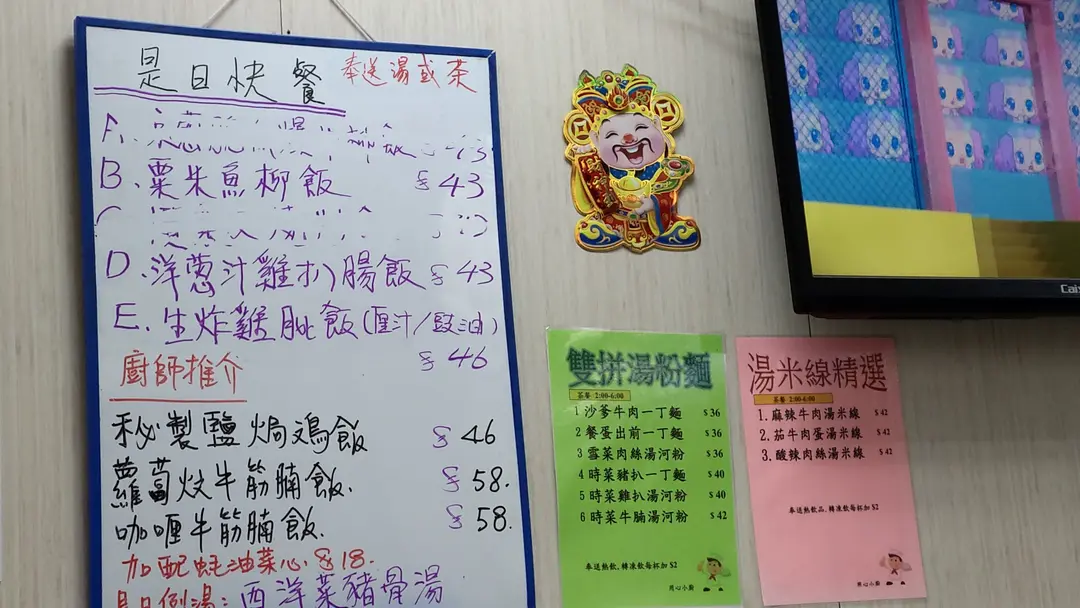 是日快餐 奉送湯或茶
A.
B. 粟米魚柳飯 $43
D. 洋葱汁雞扒腸飯 $43
E. 生炸雞髀飯(厘汁/豉油)
$46
廚師推介
秘製鹽焗鸡飯 $46
蘿蔔炆牛筋腩飯. $58.
咖喱牛筋腩飯. $58.
加配蚝油菜心 $18.
是日例湯: 西洋菜豬骨湯
雙拼湯粉麵
茶餐 2:00-6:00
1 沙爹牛肉一丁麵 $36
2 餐蛋出前一丁麵 $36
3 雪菜肉絲湯河粉 $36
4 時菜豬扒一丁麵 $40
5 時菜雞扒湯河粉 $40
6 時菜牛腩湯河粉 $42
奉送熱飲, 轉凍飲每杯加 $2
用心小廚
湯米線精選
茶餐 2:00-6:00
1. 麻辣牛肉湯米線 $42
2. 茄牛肉蛋湯米線 $42
3. 酸辣肉絲湯米線 $42
奉送熱飲品, 轉凍飲每杯加 $2
用心小廚